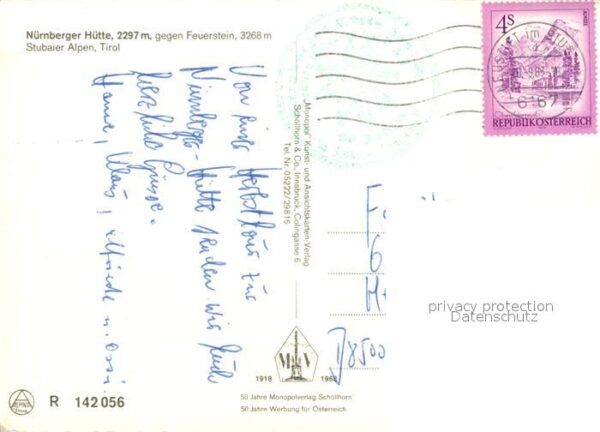 Nürnberger Hütte, 2297 m, gegen Feuerstein, 3268 m
Stubaier Alpen, Tirol
Von einer Herbsttour zur
Nürnberger-Hütte senden wir Euch
herzliche Grüsse.
Hanne, Klaus, Elfriede u. Ossi.
"Monopol" Kunst- und Ansichtskarten-Verlag
Schöllhorn & Co., Innsbruck, Colingasse 6
Tel. Nr. 05222/29816
4S
REPUBLIK ÖSTERREICH
F
6
H
D 8500
privacy protection
Datenschutz
M V
1918 1968
50 Jahre Monopolverlag Schöllhorn
50 Jahre Werbung für Österreich
ALPINE
R 142 056